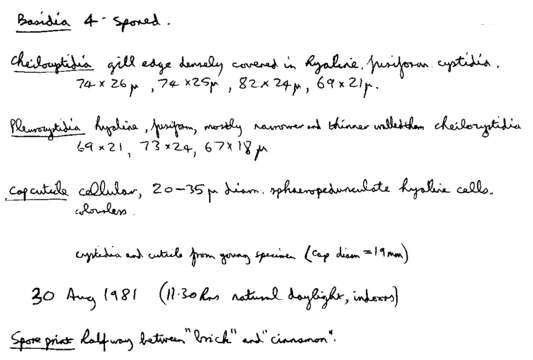 Basidia 4-spored.
Cheilocystidia gill edge densely covered in hyaline, fusiform cystidia.
74 x 26µ, 74 x 25µ, 82 x 24µ, 69 x 21µ.
Pleurocystidia hyaline, fusiform, mostly narrower and thinner walled than cheilocystidia
69 x 21, 73 x 24, 67 x 18µ
Cap cuticle cellular, 20-35µ diam. sphaeropedunculate hyaline cells.
colourless.
cystidia and cuticle from young specimen (cap diam = 19mm)
30 Aug 1981 (11.30 hrs natural daylight, indoors)
Spore print halfway between "brick" and "cinnamon".